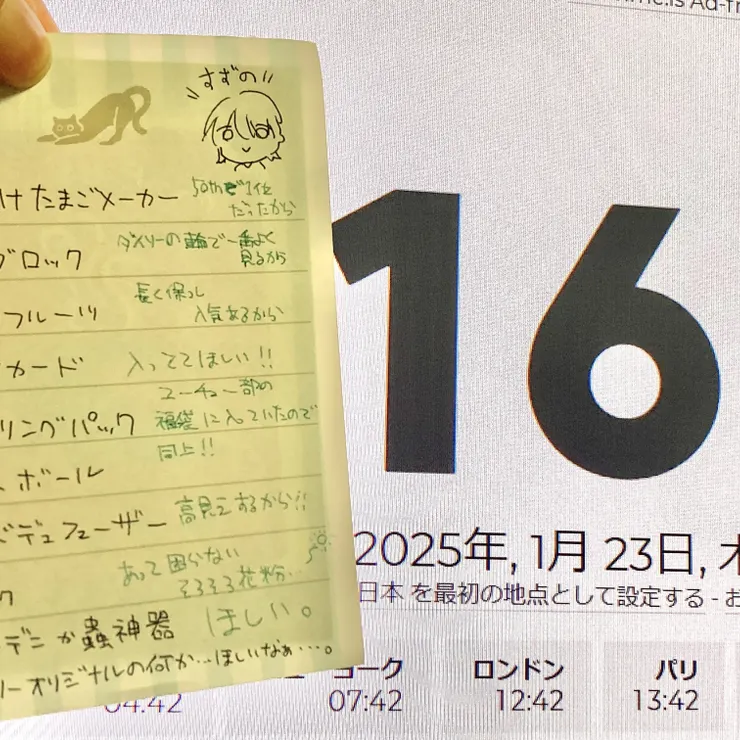 すずの
けたまごメーカー
50thで1位
だったから
ブロック
ダイソーの輪で一番よく
見るから
フルーツ
長く保つし
人気あるから
カード
入っててほしい!!
リングパック
ユーチュー部の
福袋に入っていたので
ボール
同上!!
デュフューザー
高見えするから!!
ク
あって困らない
そろそろ花粉…
デニか蟲神器
ほしい。
リーオリジナルの何か…ほしいなぁ…。
16
2025年, 1月 23日, 木
日本 を最初の地点として設定する - お
ヨーク
ロンドン
パリ
04:42
07:42
12:42
13:42